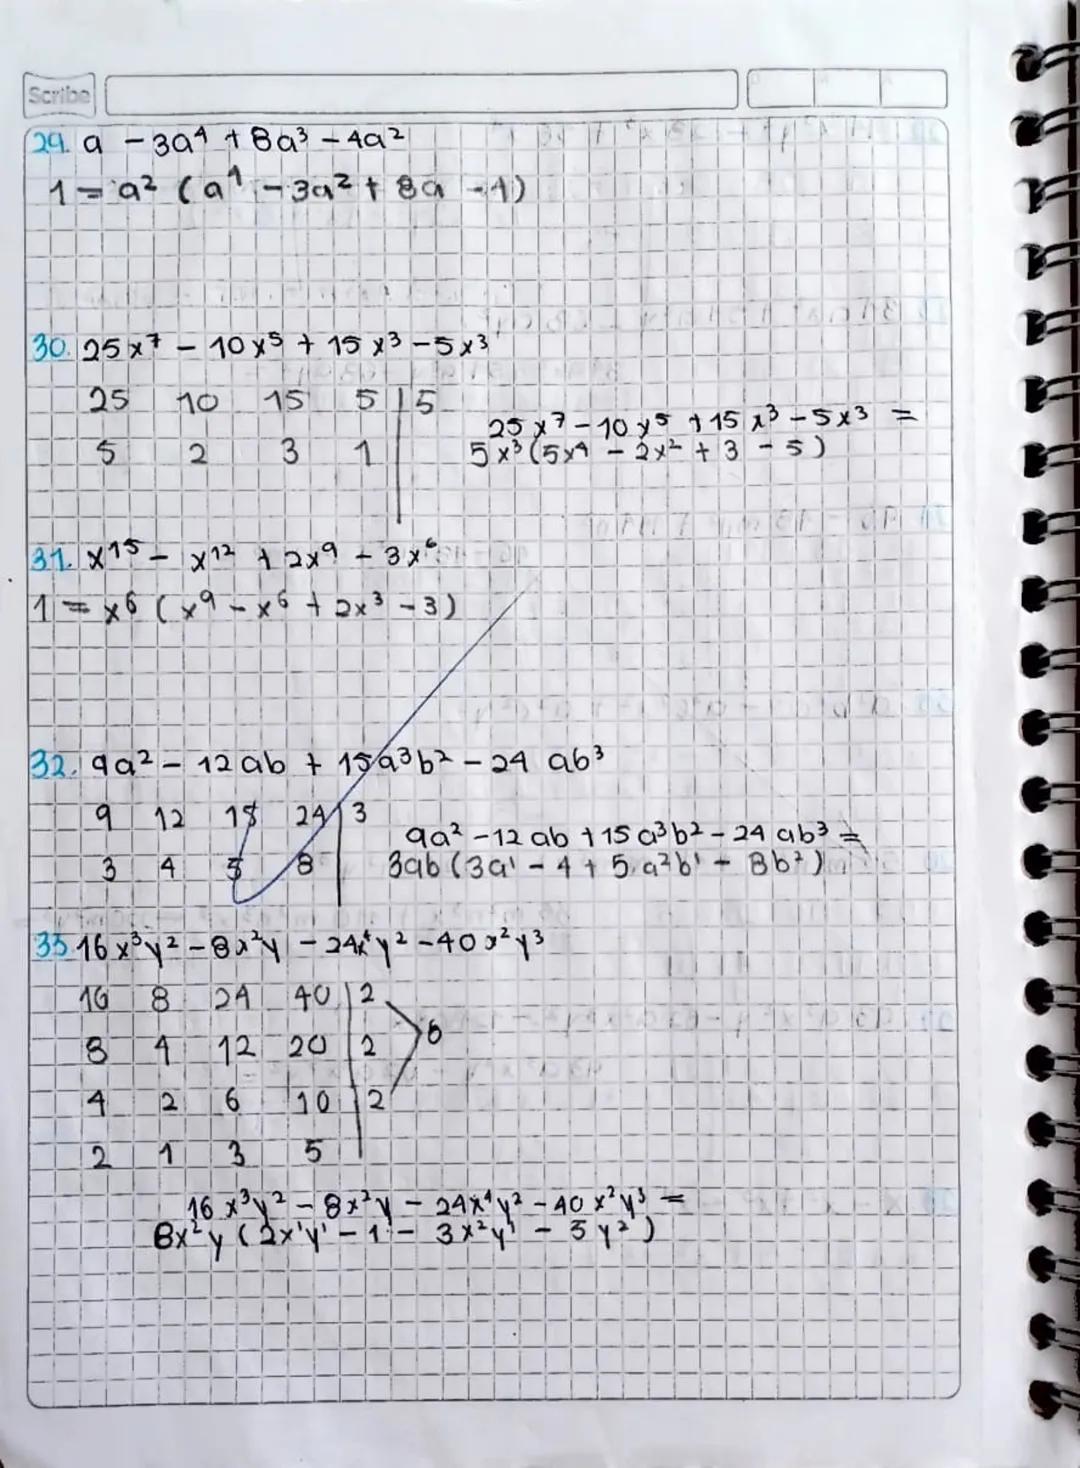 Scribe
29. a - 3a⁴ + 8a³ - 4a²
1 = a² (a¹ - 3a² + 8a - 1)
30. 25x⁷ - 10x⁵ + 15x³ - 5x³
25 10 15 5 | 5
5 2 3 1
25x⁷ - 10y⁵ + 15x³ - 5x³ =
5x³ (5x⁴ - 2x² + 3 - 5)
31. x¹⁵ - x¹² + 2x⁹ - 3x⁶
1 = x⁶ (x⁹ - x⁶ + 2x³ - 3)
32. 9a² - 12ab + 15a³b² - 24 ab³
9 12 15 24 | 3
3 4 5 8
9a² - 12ab + 15a³b² - 24 ab³ =
3ab (3a¹ - 4 + 5.a²b¹ - 8b²)
33 16x³y² - 8x²y - 24x⁴y² - 40x²y³
16 8 24 40 | 2
8 4 12 20 | 2 8
4 2 6 10 | 2
2 1 3 5
16x³y² - 8x²y - 24x⁴y² - 40x²y³ =
8x²y (2x¹y¹ - 1 - 3x²y¹ - 5y²)